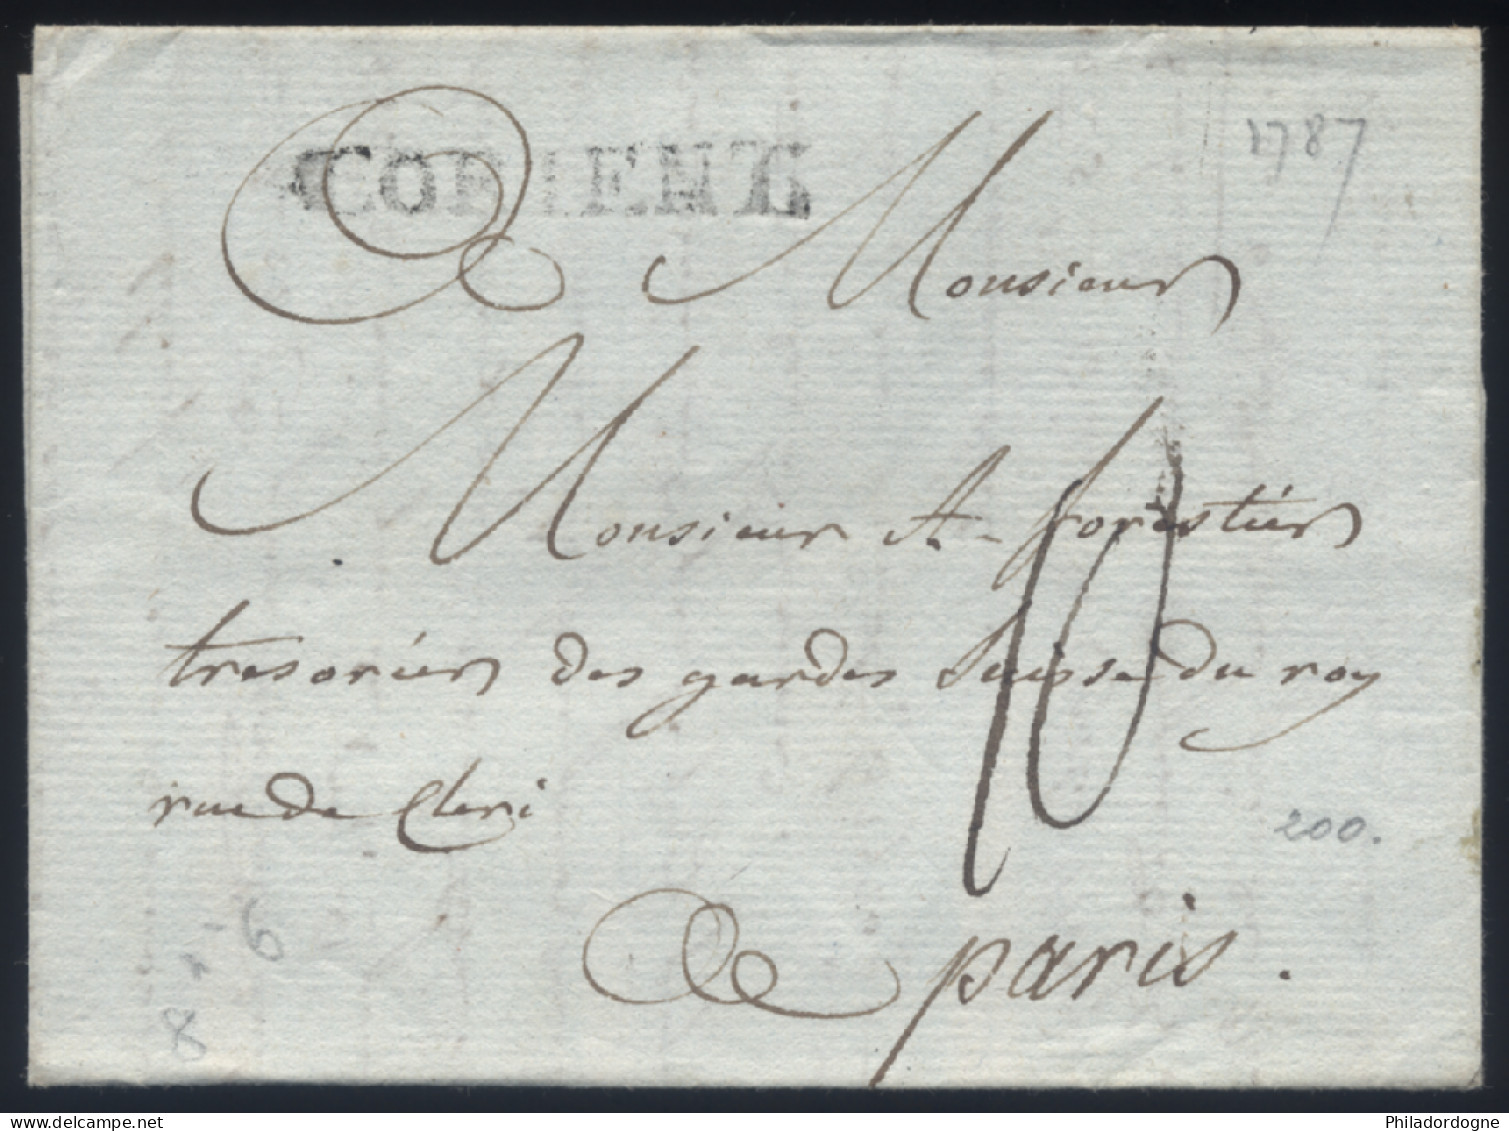 1787
A Monsieur
Monsieur A. forestier
tresorier des gardes Suisse du roy
rue de Cleri
10
200.
A paris.
6
8
delcampe.net
Philadordogne